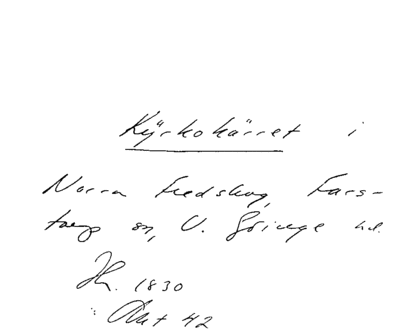 Kyrkokärret i
Norra Fredskog, Fårs-
torp sn, V. Göinge hd.
Hr. 1830
Akt 42